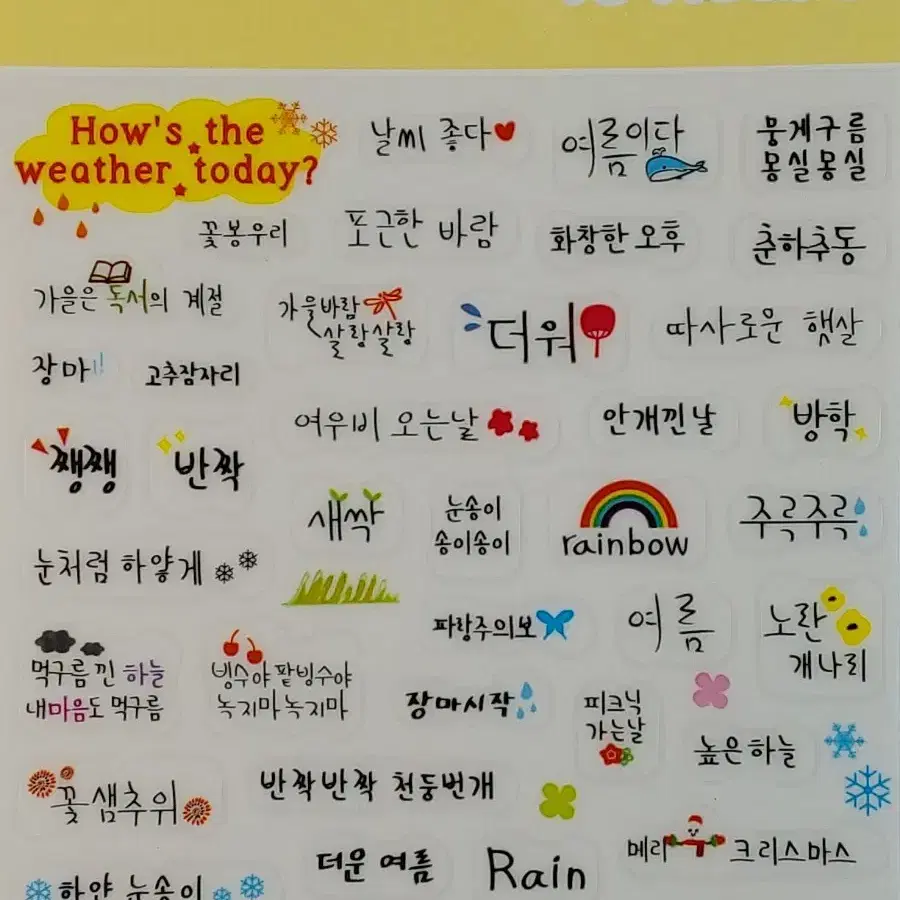 How's the
weather today?
날씨 좋다
여름이다
뭉게구름
몽실몽실
꽃봉우리
포근한 바람
화창한 오후
춘하추동
가을은 독서의 계절
가을바람
살랑살랑
더워
따사로운 햇살
장마
고추잠자리
여우비 오는날
안개낀날
방학
쨍쨍
반짝
새싹
눈송이
송이송이
rainbow
주륵주륵
눈처럼 하얗게
파랑주의보
여름
노란
개나리
먹구름 낀 하늘
내마음도 먹구름
빙수야 팥빙수야
녹지마 녹지마
장마시작
피크닉
가는날
높은하늘
꽃샘추위
반짝반짝 천둥번개
더운 여름
Rain
메리 크리스마스
하얀 눈송이